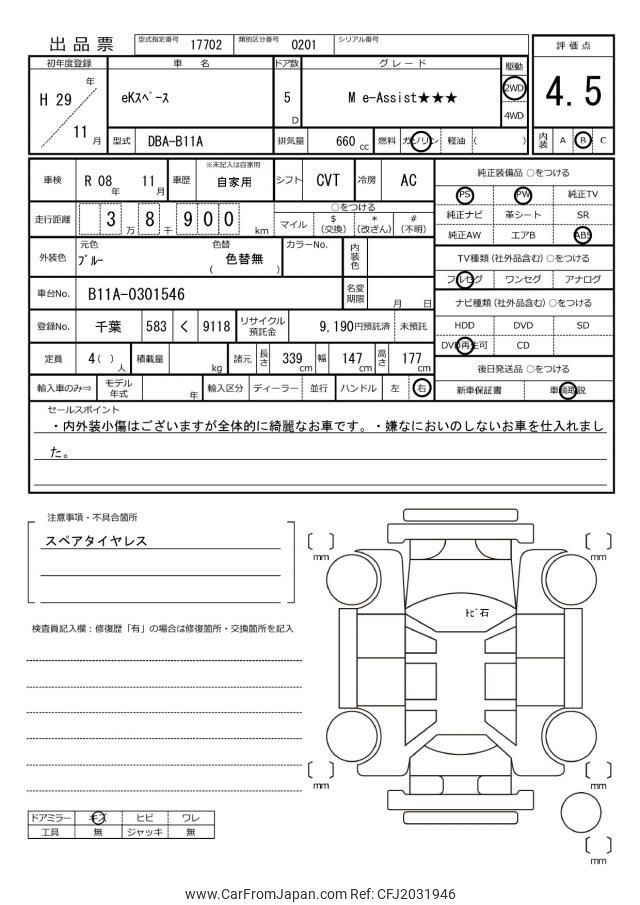 出品票 型式指定番号 17702 類別区分番号 0201 シリアル番号
評価点
4.5
初年度登録 車名 ドア数 グレード 駆動
H 29 年 11 月
eKｽﾍﾟｰｽ 5 D M e-Assist★★★ 2WD 4WD
型式 DBA-B11A 排気量 660 cc 燃料 ガソリン 軽油 ( )
内装 A B C
車検 R 08 年 11 月 車歴 ※未記入は自家用 自家用 シフト CVT 冷房 AC
走行距離 3 万 8 千 9 0 0 km
○をつける
マイル $ (交換) * (改ざん) # (不明)
外装色 元色 ﾌﾞﾙｰ 色替 ( 色替無 ) カラーNo. 内装色
車台No. B11A-0301546 名変期限 月 日
登録No. 千葉 583 く 9118 リサイクル預託金 9,190円預託済 未預託
定員 4 ( ) 人 積載量 kg 諸元 長さ 339 cm 幅 147 cm 高さ 177 cm
輸入車のみ⇒ モデル年式 年 輸入区分 ディーラー 並行 ハンドル 左 右
純正装備品 ○をつける
PS PW 純正TV
純正ナビ 革シート SR
純正AW エアB ABS
TV種類 (社外品含む) ○をつける
フルセグ ワンセグ アナログ
ナビ種類 (社外品含む) ○をつける
HDD DVD SD
DVD再生可 CD
後日発送品 ○をつける
新車保証書 車輌取説
セールスポイント
・内外装小傷はございますが全体的に綺麗なお車です。・嫌なにおいのしないお車を仕入れまし
た。
注意事項・不具合箇所
スペアタイヤレス
検査員記入欄：修復歴「有」の場合は修復箇所・交換箇所を記入
mm
mm
ﾄﾋﾞ石
mm
mm
mm
ドアミラー キズ ヒビ ワレ
工具 無 ジャッキ 無
www.CarFromJapan.com Ref: CFJ2031946